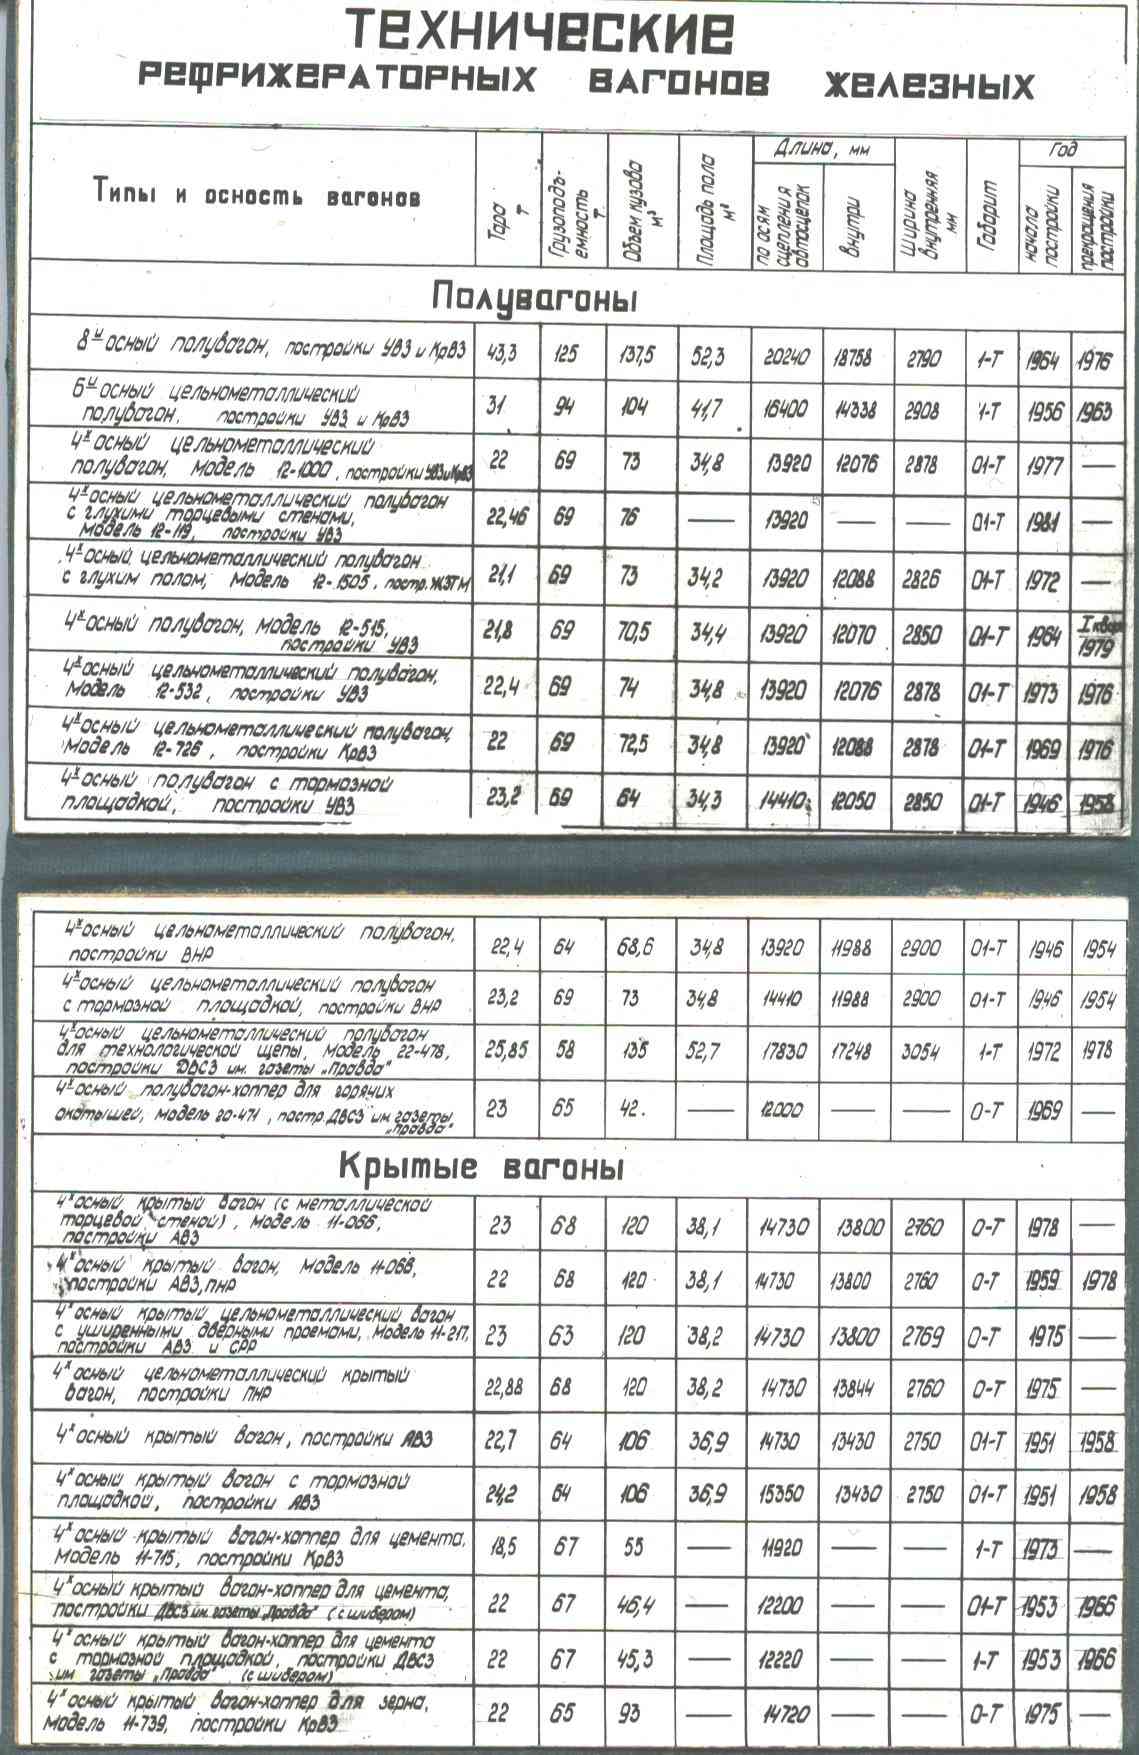 ТЕХНИЧЕСКИЕ
РЕФРИЖЕРАТОРНЫХ ВАГОНОВ ЖЕЛЕЗНЫХ
Типы и осность вагонов
Тара т
Грузоподъ-емность т
Объем кузова м³
Площадь пола м²
Длина, мм
по осям сцепления автосцепок
внутри
Ширина внутренняя мм
Габарит
Год
начала постройки
прекращения постройки
Полувагоны
8и осный полувагон, постройки УВЗ и КрВЗ 43,3 125 137,5 52,3 20240 18758 2790 1-Т 1964 1976
6и осный цельнометаллический
полувагон, постройки УВЗ и КрВЗ 31 94 104 41,7 16400 14338 2908 1-Т 1956 1963
4х осный цельнометаллический
полувагон, модель 12-1000, постройки УВЗ и КрВЗ 22 69 73 34,8 13920 12076 2878 01-Т 1977 —
4х осный цельнометаллический полувагон
с глухими торцевыми стенами,
модель 12-119, постройки УВЗ 22,46 69 76 — 13920 — — 01-Т 1981 —
4х осный цельнометаллический полувагон
с глухим полом, модель 12-1505, постр. ЖЗТМ 21,1 69 73 34,2 13920 12088 2826 01-Т 1972 —
4х осный полувагон, модель 12-515,
постройки УВЗ 21,8 69 70,5 34,4 13920 12070 2850 01-Т 1964 I квар 1979
4х осный цельнометаллический полувагон,
модель 12-532, постройки УВЗ 22,4 69 74 34,8 13920 12076 2878 01-Т 1973 1976
4х осный цельнометаллический полувагон,
модель 12-726, постройки КрВЗ 22 69 72,5 34,8 13920 12088 2878 01-Т 1969 1976
4х осный полувагон с тормозной
площадкой, постройки УВЗ 23,2 69 64 34,3 14410 12050 2850 01-Т 1946 1958
4х осный цельнометаллический полувагон,
постройки ВНР 22,4 64 68,6 34,8 13920 11988 2900 01-Т 1946 1954
4х осный цельнометаллический полувагон
с тормозной площадкой, постройки ВНР 23,2 69 73 34,8 14410 11988 2900 01-Т 1946 1954
4х осный цельнометаллический полувагон
для технологической щепы, модель 22-478,
постройки ДВСЗ им. газеты „Правда" 25,85 58 135 52,7 17830 17248 3054 1-Т 1972 1978
4х осный полувагон-хоппер для горячих
окатышей, модель 20-471, постр. ДВСЗ им газеты
„Правда" 23 65 42. — 12000 — — 0-Т 1969 —
Крытые вагоны
4х осный крытый вагон (с металлической
торцевой стеной), модель 11-066,
постройки АВЗ 23 68 120 38,1 14730 13800 2760 0-Т 1978 —
4х осный крытый вагон, модель 11-066,
постройки АВЗ, ПНР 22 68 120 38,1 14730 13800 2760 0-Т 1959 1978
4х осный крытый цельнометаллический вагон
с уширенными дверными проемами, модель 11-217,
постройки АВЗ и СРР 23 63 120 38,2 14730 13800 2769 0-Т 1975 —
4х осный цельнометаллический крытый
вагон, постройки ПНР 22,88 68 120 38,2 14730 13844 2760 0-Т 1975 —
4х осный крытый вагон, постройки АВЗ 22,7 64 106 36,9 14730 13430 2750 01-Т 1951 1958
4х осный крытый вагон с тормозной
площадкой, постройки АВЗ 24,2 64 106 36,9 15350 13430 2750 01-Т 1951 1958
4х осный крытый вагон-хоппер для цемента,
модель 11-715, постройки КрВЗ 18,5 67 55 — 11920 — — 1-Т 1973 —
4х осный крытый вагон-хоппер для цемента,
постройки ДВСЗ им газеты „Правда" (с шибером) 22 67 46,4 — 12200 — — 01-Т 1953 1966
4х осный крытый вагон-хоппер для цемента
с тормозной площадкой, постройки ДВСЗ
им газеты „Правда" (с шибером) 22 67 45,3 — 12220 — — 1-Т 1953 1966
4х осный крытый вагон-хоппер для зерна,
модель 11-739, постройки КрВЗ 22 65 93 — 14720 — — 0-Т 1975 —